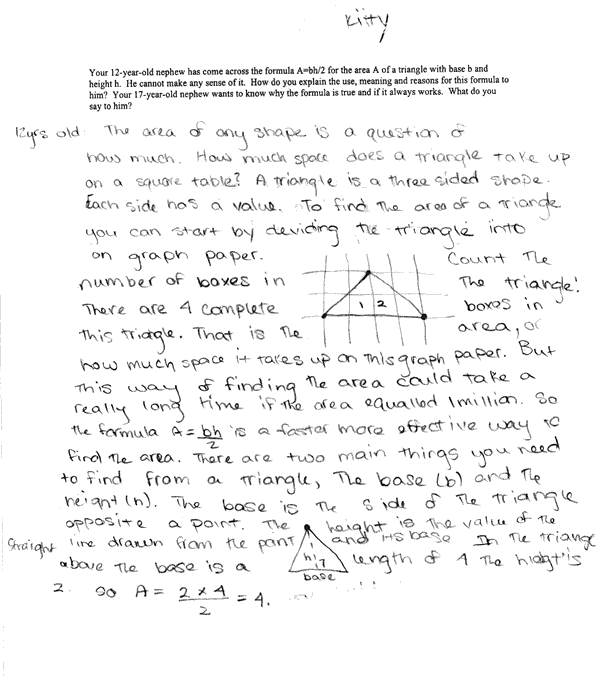 Kitty
Your 12-year-old nephew has come across the formula A=bh/2 for the area A of a triangle with base b and
height h. He cannot make any sense of it. How do you explain the use, meaning and reasons for this formula to
him? Your 17-year-old nephew wants to know why the formula is true and if it always works. What do you
say to him?
12yrs old: The area of any shape is a question of
how much. How much space does a triangle take up
on a square table? A triangle is a three sided shape.
Each side has a value. To find the area of a triangle
you can start by deviding the triangle into
on graph paper. Count the
number of boxes in The triangle!
1 2
There are 4 complete boxes in
this triagle. That is the area, or
how much space it takes up on this graph paper. But
this way of finding the area could take a
really long time if the area equalled 1 million. So
the formula A = bh/2 is a faster more effective way to
find the area. There are two main things you need
to find from a triangle, The base (b) and the
height (h). The base is the side of the triangle
opposite a point. The height is the value of the
straight line drawn from the point and its base In the triange
h
base
above the base is a length of 4 The hieght is
2. so A = 2 x 4 / 2 = 4.